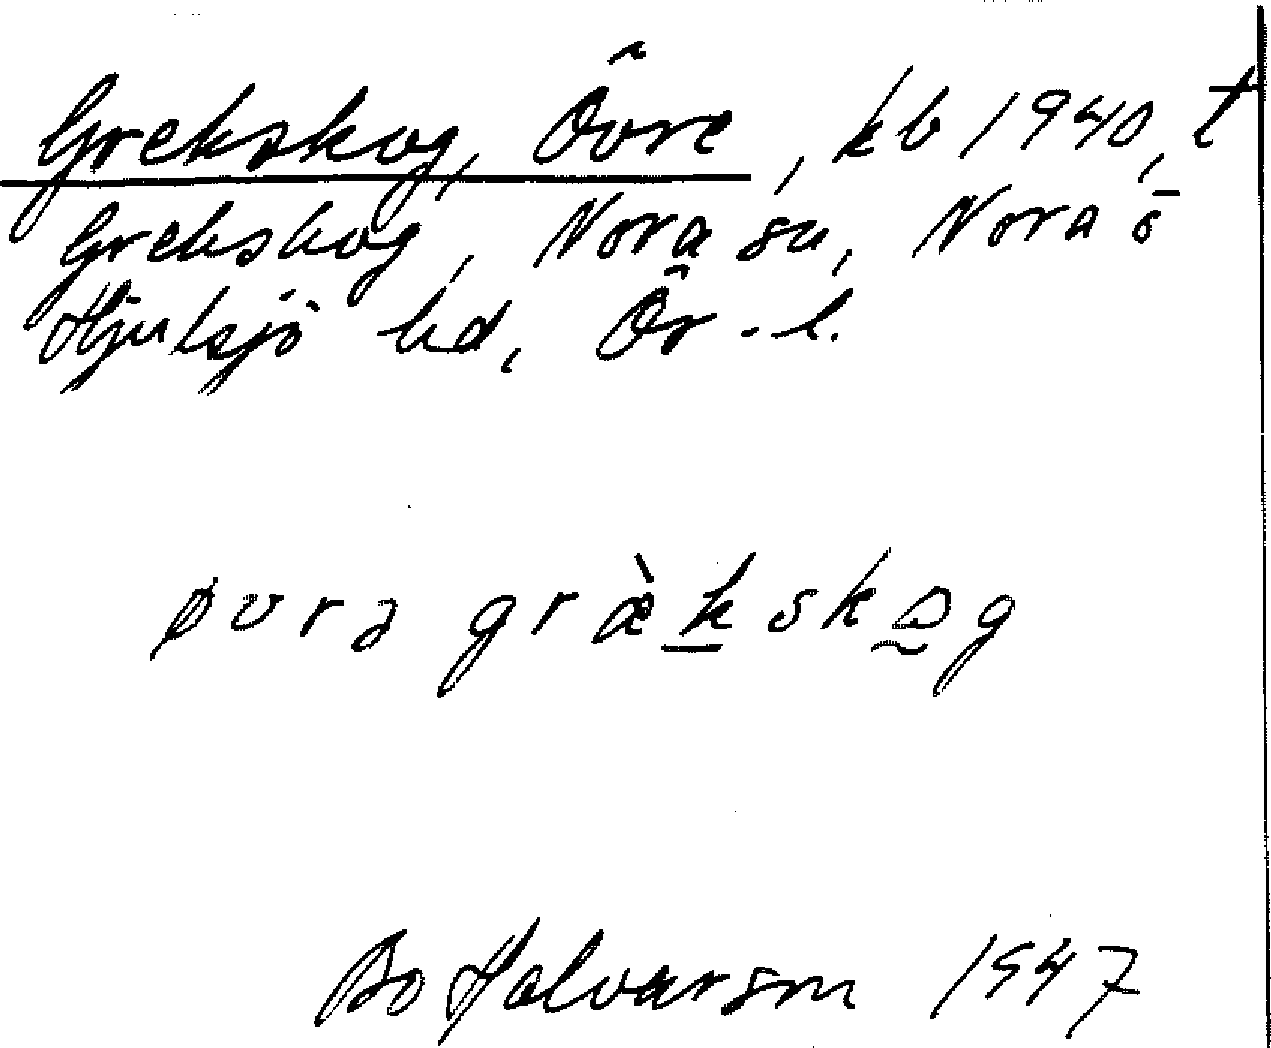 Grekskog, Övre, kb 1940, t
Grekskog, Nora sn, Nora o
Hjulsjö bd, Ör-l.
øvrə græ̀kskɔg
Bo Halvarson 1947